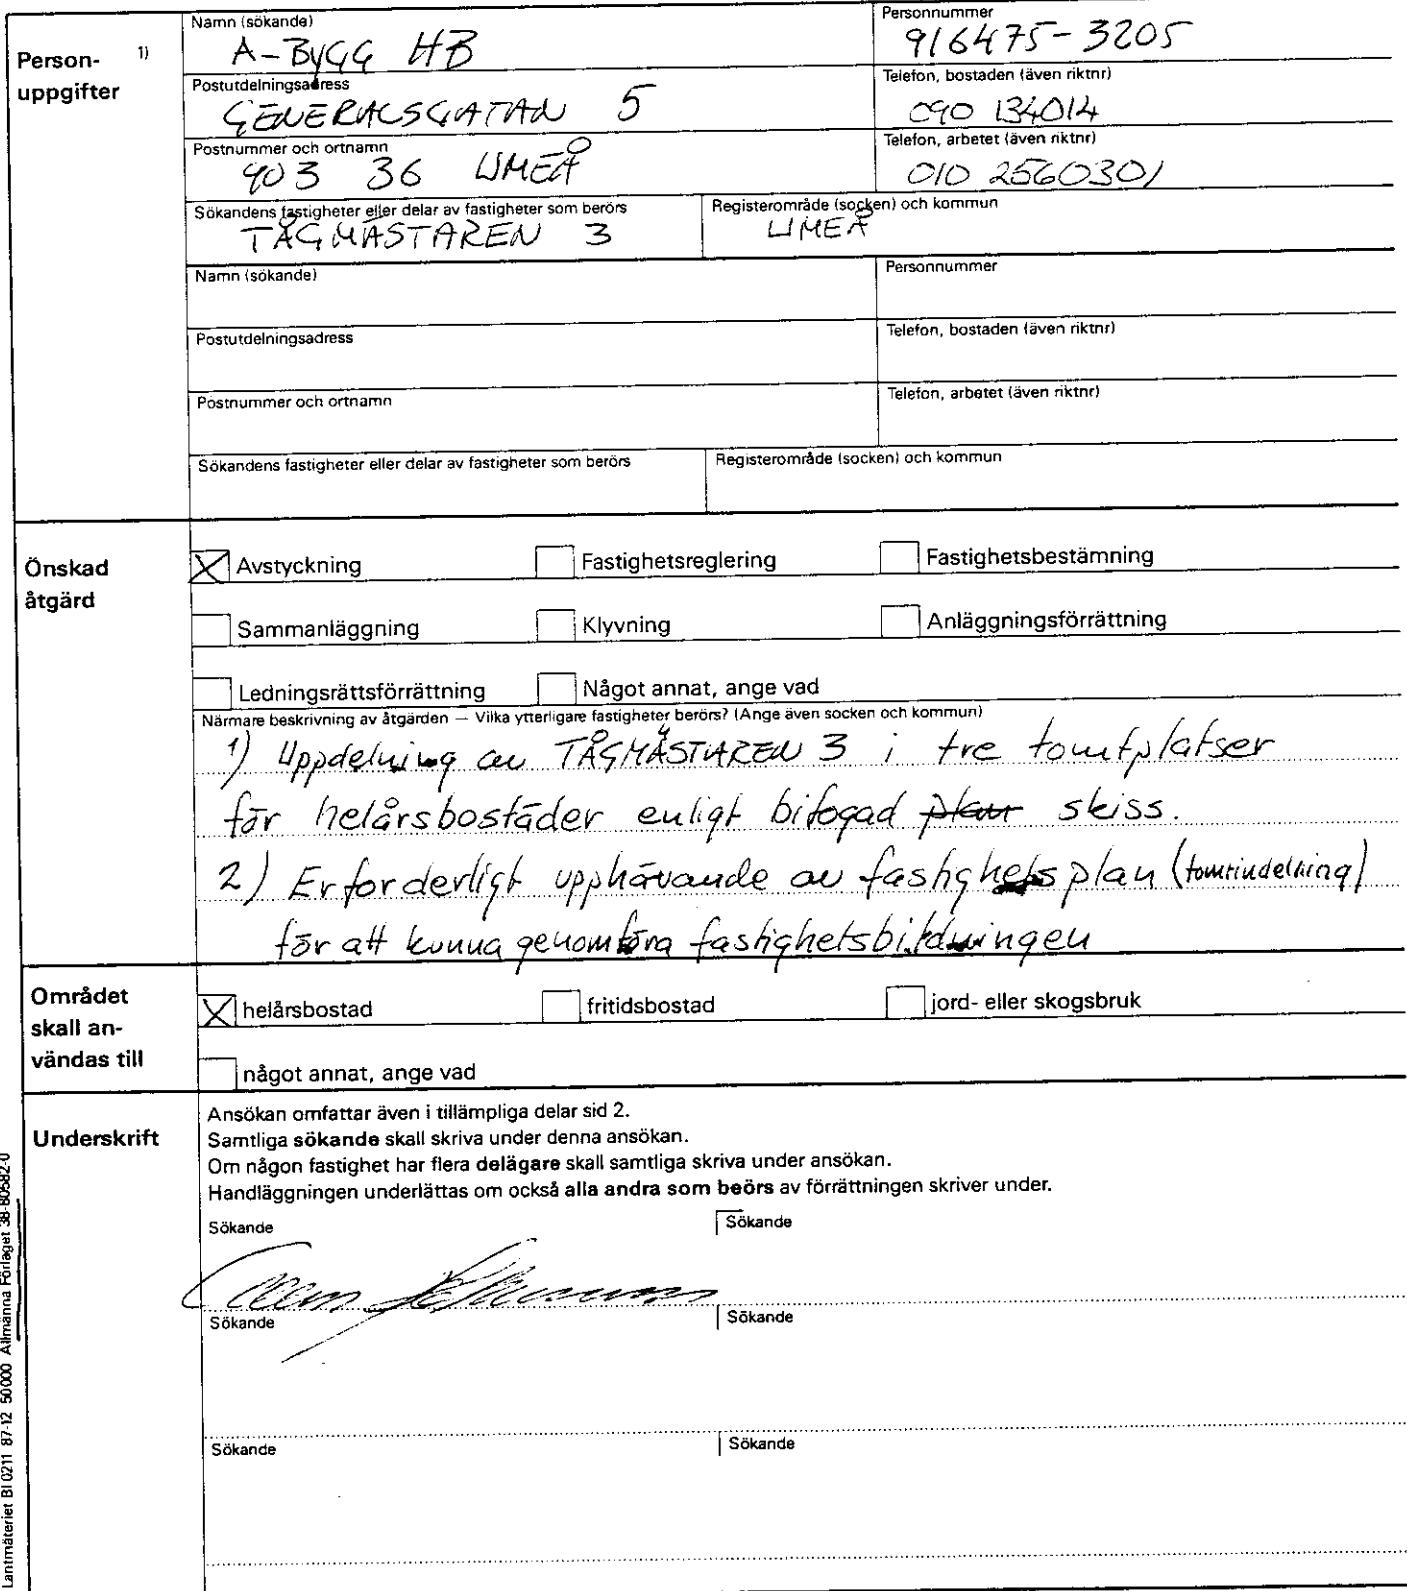 Person- 1)
uppgifter
Namn (sökande)
A-BYGG HB
Personnummer
916475-3205
Postutdelningsadress
GENERALSGATAN 5
Telefon, bostaden (även riktnr)
090 134014
Postnummer och ortnamn
903 36 UMEÅ
Telefon, arbetet (även riktnr)
010 2560301
Sökandens fastigheter eller delar av fastigheter som berörs
TÅGMÄSTAREN 3
Registerområde (socken) och kommun
UMEÅ
Namn (sökande)
Personnummer
Postutdelningsadress
Telefon, bostaden (även riktnr)
Postnummer och ortnamn
Telefon, arbetet (även riktnr)
Sökandens fastigheter eller delar av fastigheter som berörs
Registerområde (socken) och kommun
Önskad
åtgärd
X Avstyckning Fastighetsreglering Fastighetsbestämning
Sammanläggning Klyvning Anläggningsförrättning
Ledningsrättsförrättning Något annat, ange vad
Närmare beskrivning av åtgärden — Vilka ytterligare fastigheter berörs? (Ange även socken och kommun)
1) Uppdelning av TÅGMÄSTAREN 3 i tre tomtplatser
för helårsbostäder enligt bifogad plan skiss.
2) Erforderligt upphävande av fastighetsplan (tomtindelning)
för att kunna genomföra fastighetsbildningen
Området
skall an-
vändas till
X helårsbostad fritidsbostad jord- eller skogsbruk
något annat, ange vad
Underskrift
Ansökan omfattar även i tillämpliga delar sid 2.
Samtliga sökande skall skriva under denna ansökan.
Om någon fastighet har flera delägare skall samtliga skriva under ansökan.
Handläggningen underlättas om också alla andra som beörs av förrättningen skriver under.
Sökande Sökande
Sökande Sökande
Sökande Sökande
Lantmäteriet BI 0211 87-12 50000 Allmänna Förlaget 38-80582-0